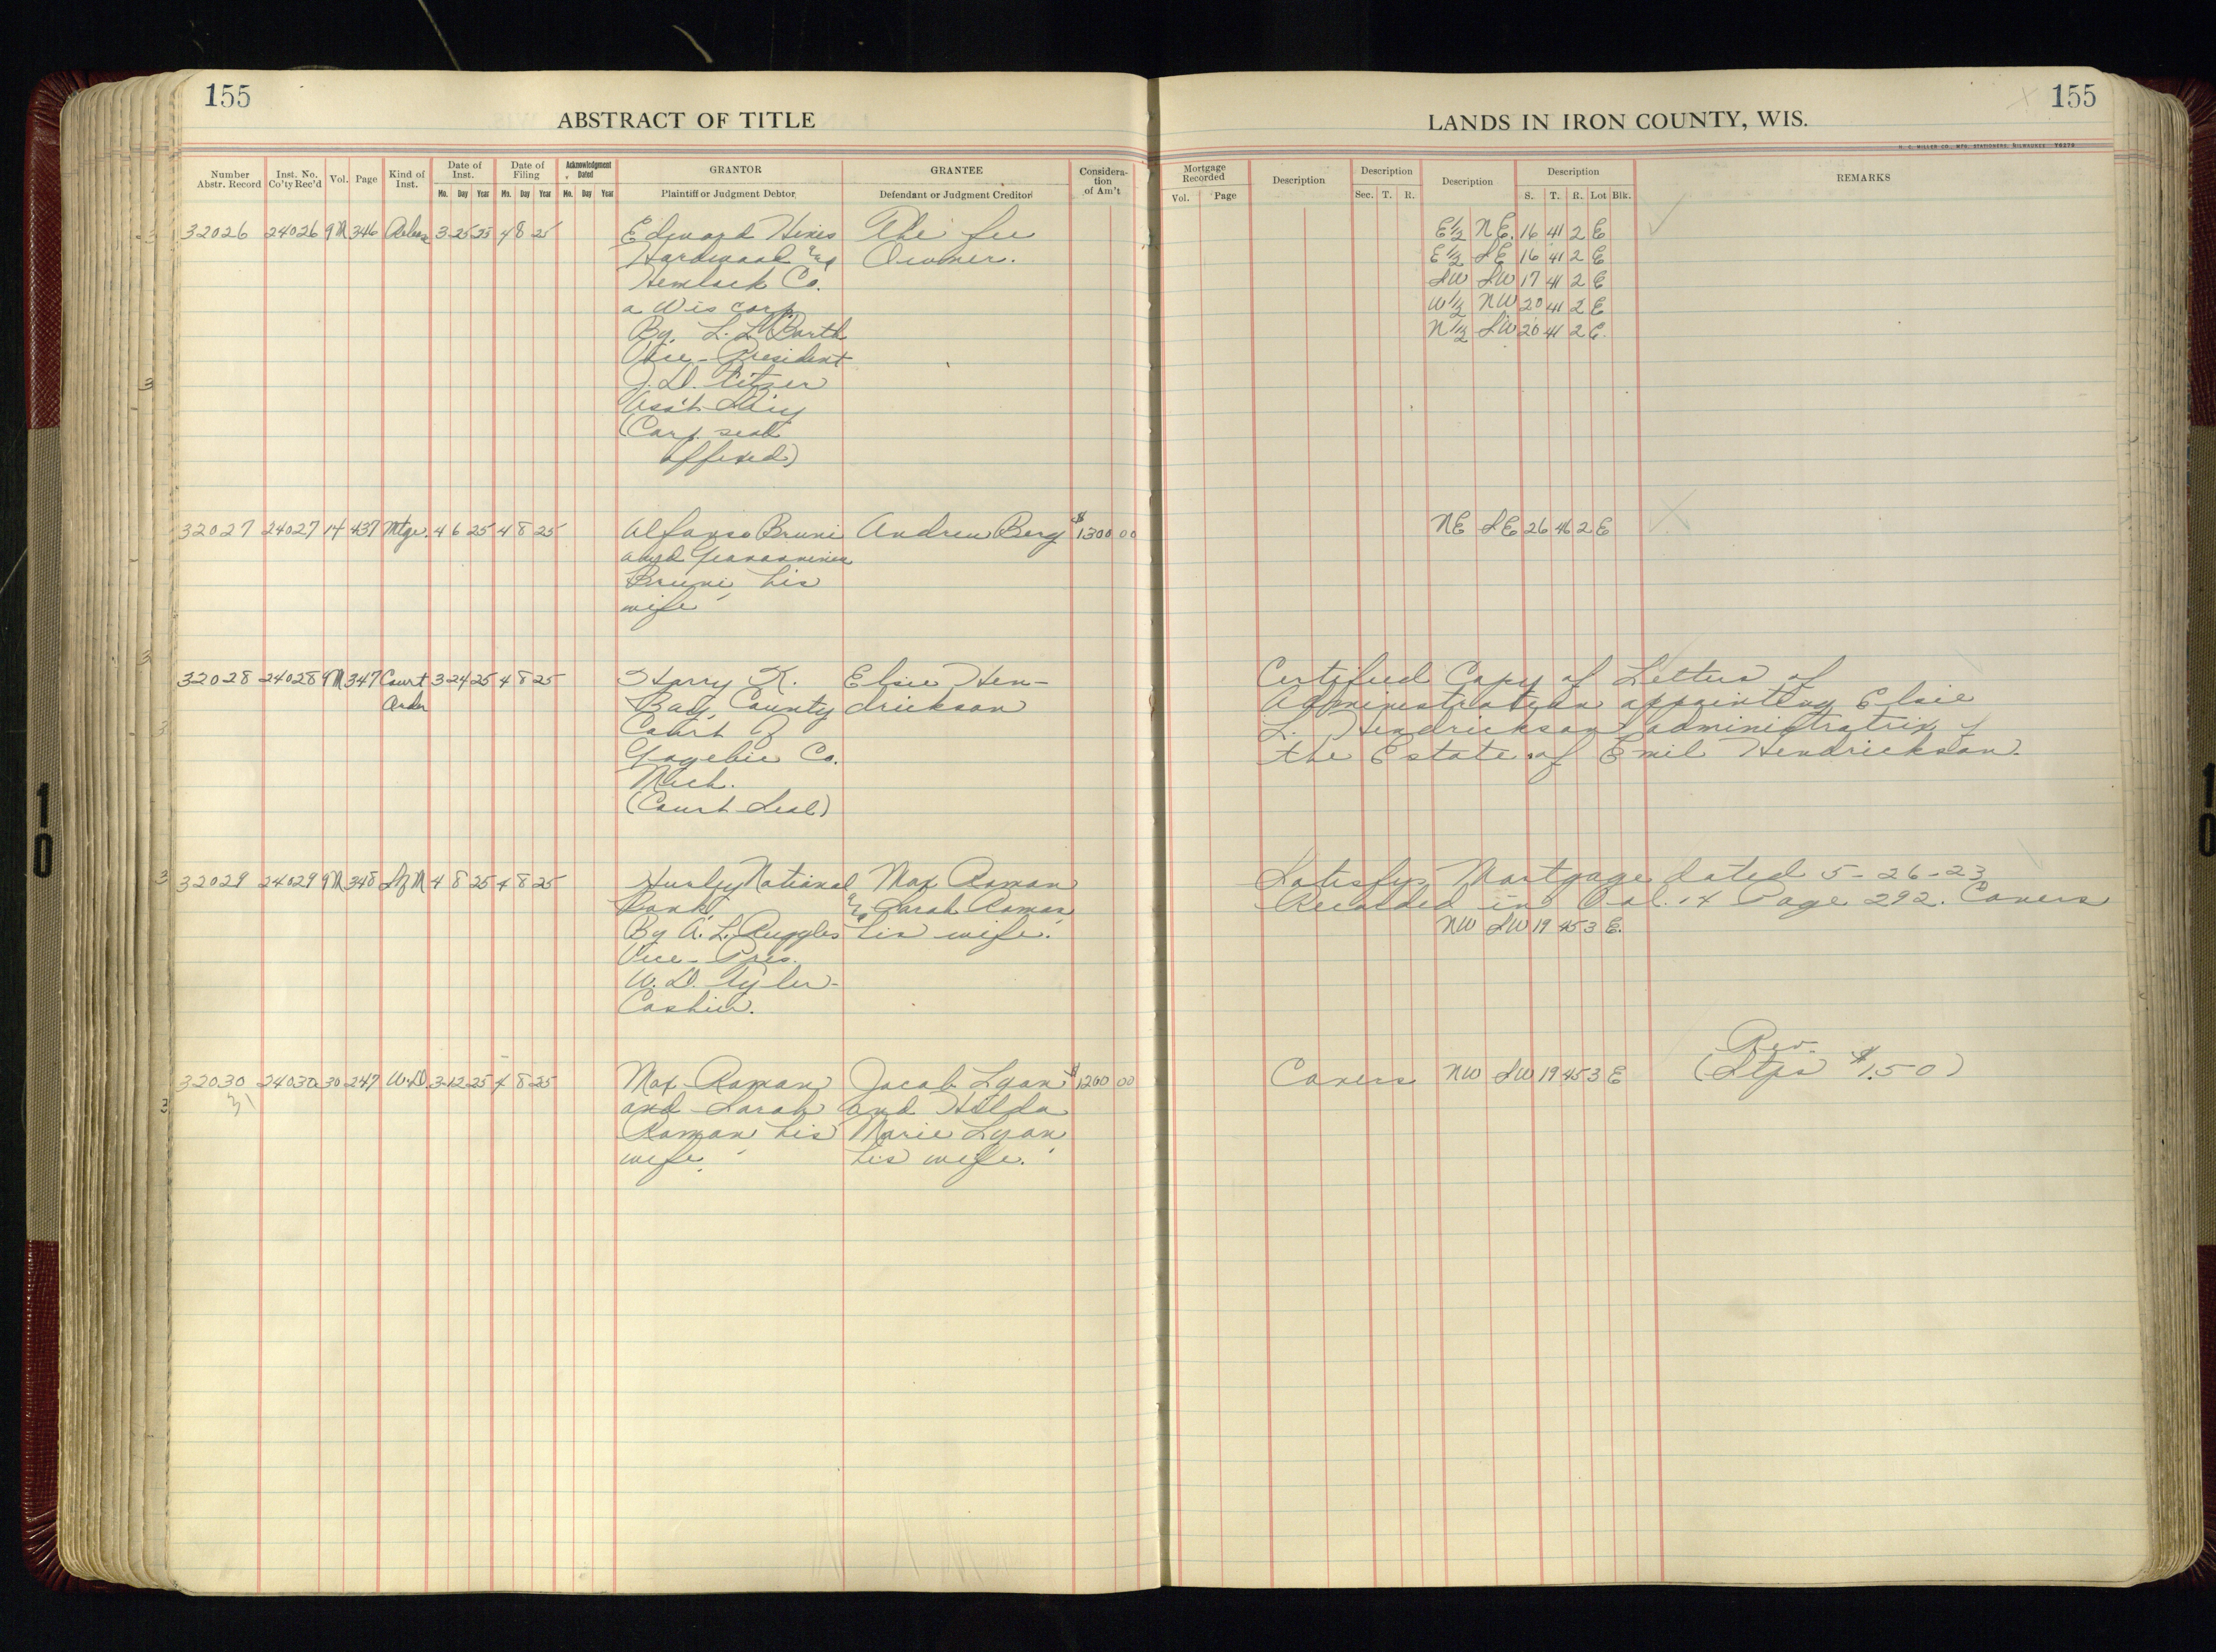 155
ABSTRACT OF TITLE
Number Abstr. Record
Inst. No. Co'ty Rec'd
Vol.
Page
Kind of Inst.
Date of Inst.
Mo. Day Year
Date of Filing
Mo. Day Year
Acknowledgment Dated
Mo. Day Year
GRANTOR
Plaintiff or Judgment Debtor
GRANTEE
Defendant or Judgment Creditor
Consideration of Am't
32026 24026 9M 346 Release 3 25 25 4 8 25 Edward Hines The fee
Hardwood & Owner.
Hemlock Co.
a Wis corp.
By L. L. Barth
Vice-President
J. D.
Ass't Sec'y
(Corp. seal
affixed)
32027 24027 14 437 Mtge. 4 6 25 4 8 25 Alfonso Bruni Andrew Berg $1300 00
and
Bruni, his
wife
32028 24028 9M 347 Court 3 24 25 4 8 25 Harry K. Elsie Hen-
Order Bay, County drickson
Court of
Gogebic Co.
Mich.
(Court Seal)
32029 24029 9M 348 S of M 4 8 25 4 8 25 Hurley National Max Roman
Bank, & Sarah Roman,
By A. L. Ruggles his wife.
Vice-Pres.
W. D. Tyler
Cashier.
32030 24030 30 247 W.D. 3 12 25 4 8 25 Max Roman Jacob Lyon $1200 00
31 and Sarah and Hilda
Roman, his Marie Lyon
wife. his wife.
155
LANDS IN IRON COUNTY, WIS.
H. C. MILLER CO., MFG. STATIONERS, MILWAUKEE
Mortgage Recorded
Vol. Page
Description
Description
Sec. T. R.
Description
Description
S. T. R. Lot Blk.
REMARKS
E½ NE 16 41 2 E
E½ SE 16 41 2 E
SW SW 17 41 2 E
W½ NW 20 41 2 E
N½ SW 20 41 2 E
NE SE 26 46 2 E
Certified Copy of Letters of
Administration appointing Elsie
L. Hendrickson administratrix of
the Estate of Emil Hendrickson.
Satisfys Mortgage dated 5-26-23
Recorded in Vol. 14 Page 292. Covers
NW SW 19 45 3 E.
Rev.
Covers NW SW 19 45 3 E (Stps $1.50)
10
10